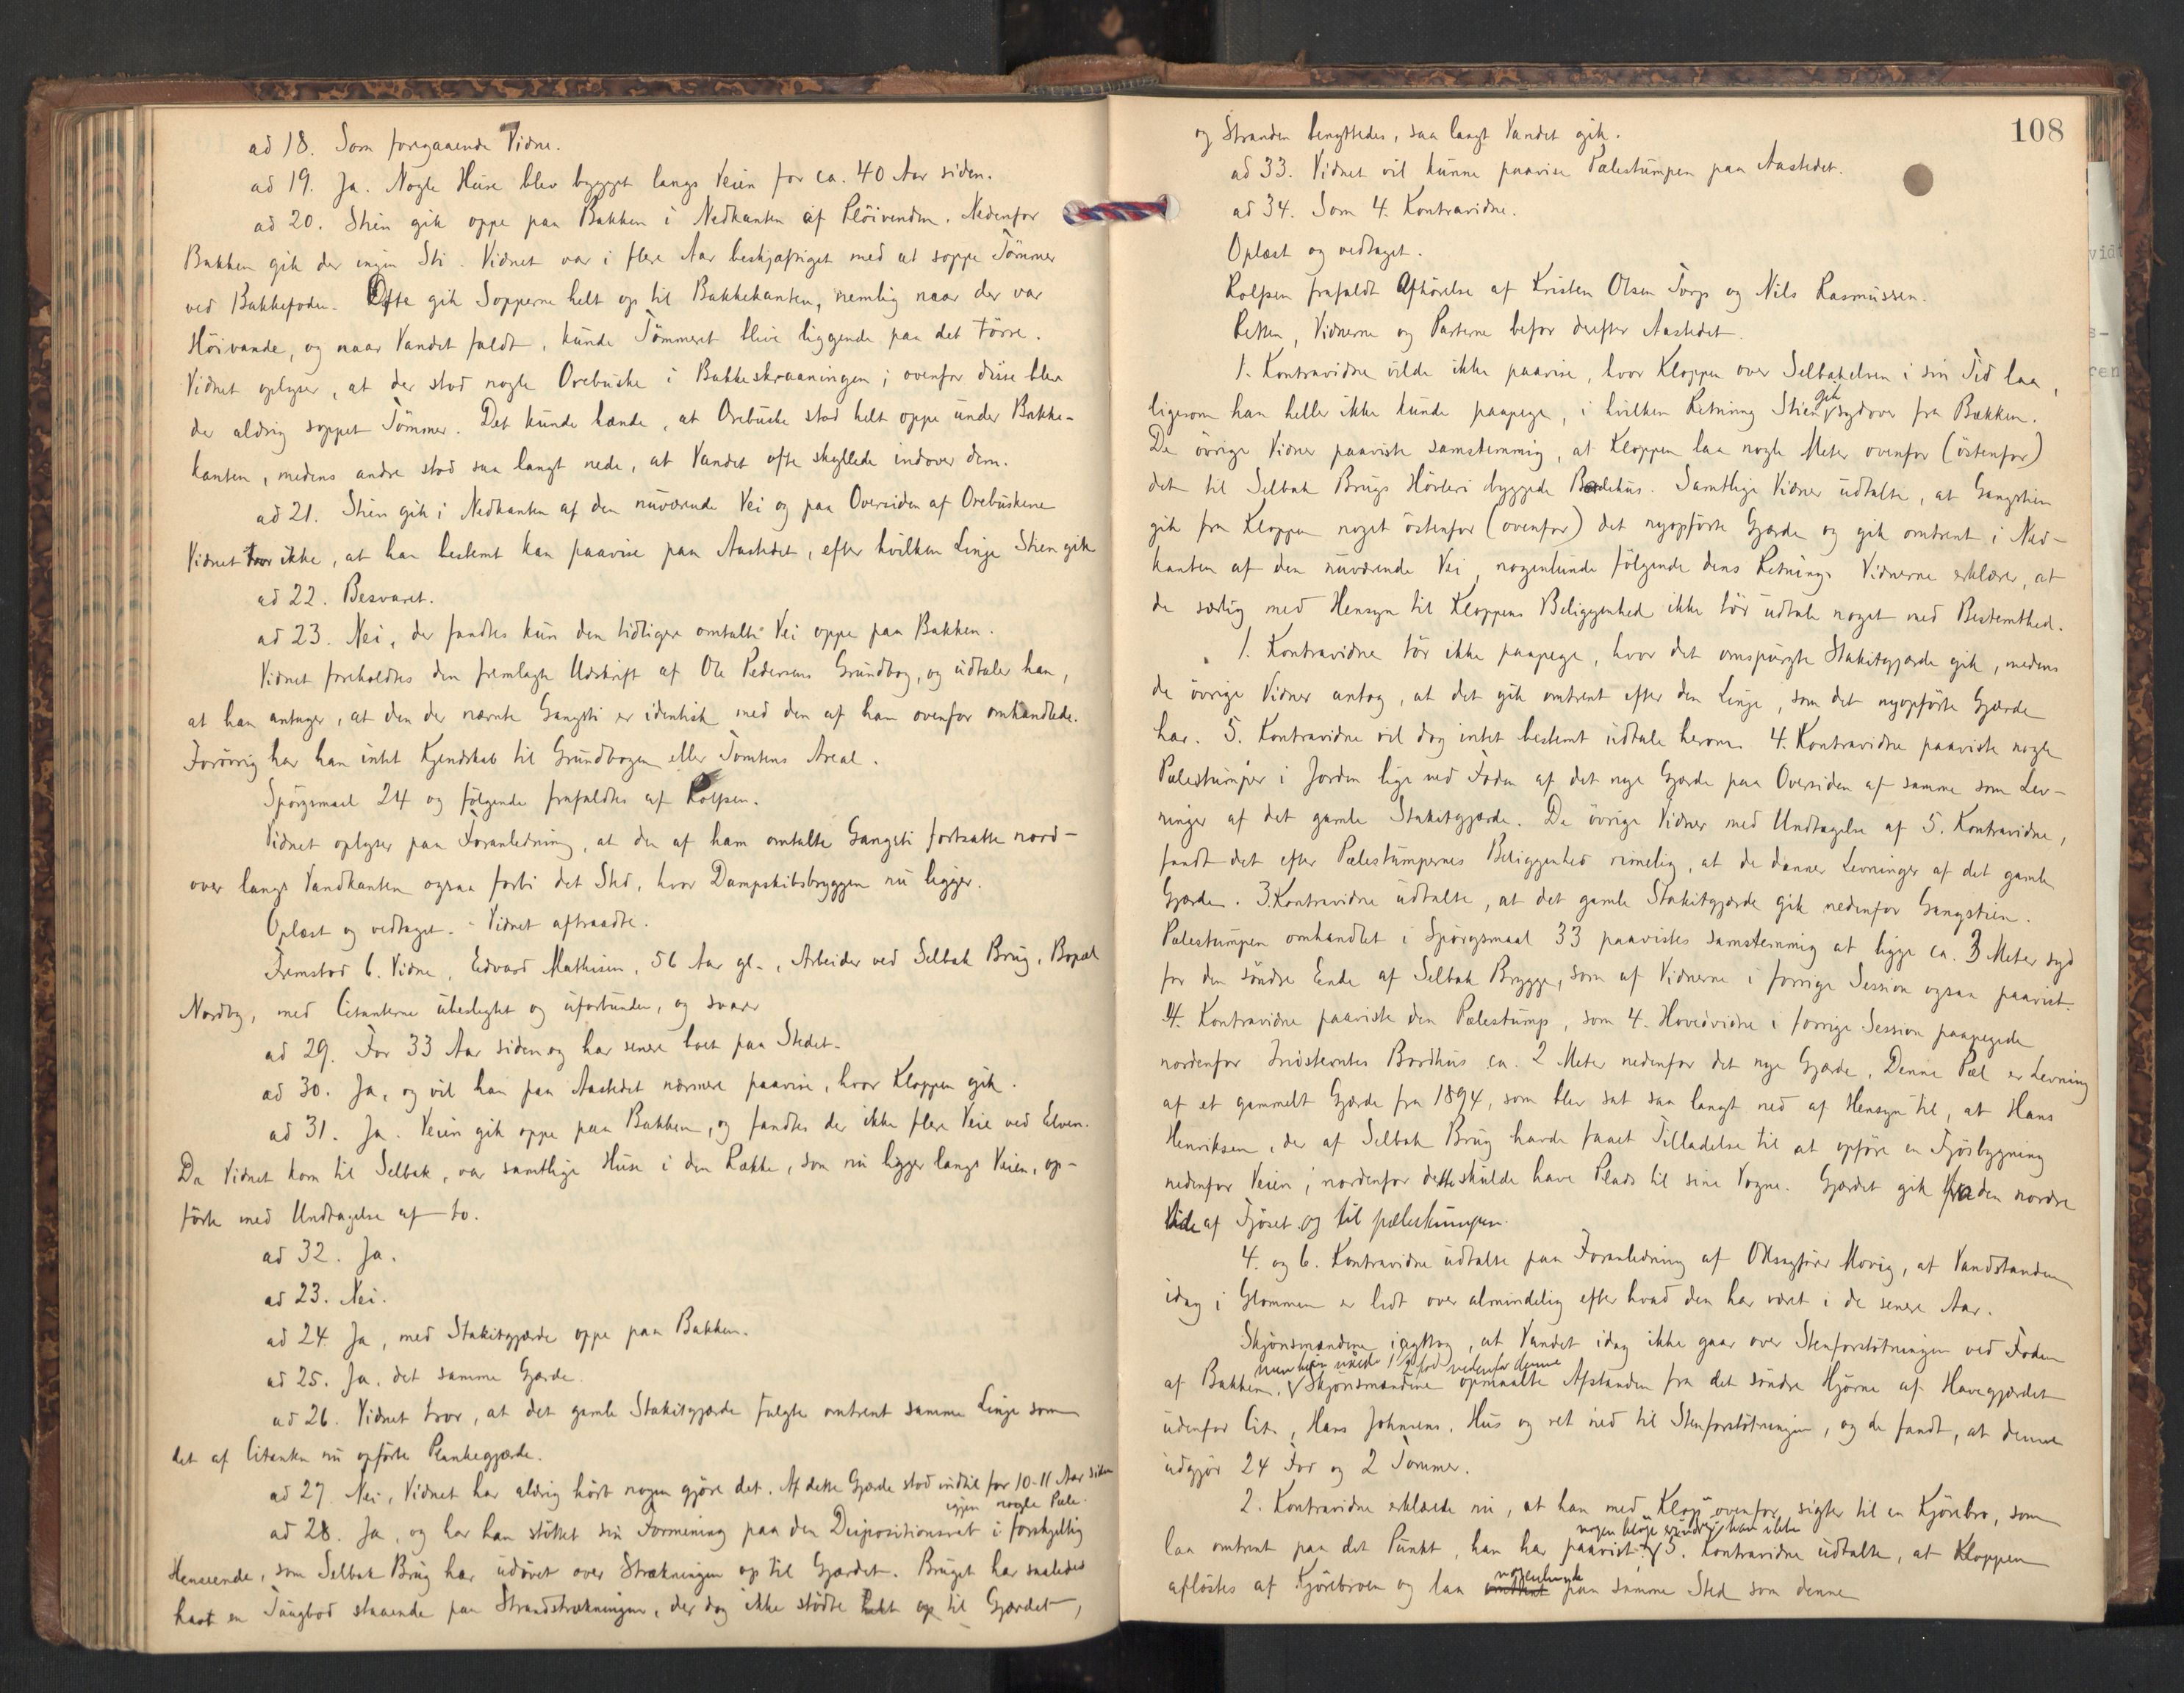 ad 18. Som foregaaende Vidne.
ad 19. Ja. Nogle Huse blev bygget langs Veien for ca. 40 Aar siden.
ad 20. Stien gik oppe paa Bakken i Nedkanten af Plöivenden. Nedenfor
Bakken gik der ingen Sti. Vidnet var i flere Aar beskjæftiget med at soppe Tömmer
ved Bakkefoden. Ofte gik Sopperne helt op til Bakkekanten, nemlig naar der var
Höivande, og naar Vandet faldt, kunde Tömmeret blive liggende paa det törre.
Vidnet oplyser, at der stod nogle Orebuske i Bakkeskraaningen; ovenfor disse blev
der aldrig soppet Tömmer. Det kunde hænde, at Orebuske stod helt oppe under Bakke-
kanten, medens andre stod saa langt nede, at Vandet ofte skyllede indover dem.
ad 21. Stien gik i Nedkanten af den nuværende Vei og paa Oversiden af Orebuskene
Vidnet tror ikke, at han bestemt kan paavise paa Aastedet, efter hvilken Linje Stien gik
ad 22. Besvaret.
ad 23. Nei, der fandtes kun den tidligere omtalte Vei oppe paa Bakken.
Vidnet foreholdtes den fremlagte Udskrift af Ole Pedersens Grundbog, og udtaler han,
at han antager, at den der nævnte Gangsti er identisk med den af ham ovenfor omhandlede.
Forövrig har han intet Kjendskab til Grundbogen eller Tomtens Areal.
Spörgsmaal 24 og fölgende frafaldtes af Rolfsen.
Vidnet oplyser paa Foranledning, at den af ham omtalte Gangsti fortsatte nord-
over langs Vandkanten ogsaa forbi det Sted, hvor Dampskibsbryggen nu ligger.
Oplæst og vedtaget. - Vidnet aftraadte.
Fremstod 6. Vidne, Edvard Mathisen, 56 Aar gl., Arbeider ved Selbak Brug, Bopæl
Nordby, med Citanterne ubeslegtet og uforbunden, og svarer
ad 29. For 33 Aar siden og har senere boet paa Stedet.
ad 30. Ja, og vil han paa Aastedet nærmere paavise, hvor Kloppen gik.
ad 31. Ja. Veien gik oppe paa Bakken, og fandtes der ikke flere Veie ved Elven.
Da Vidnet kom til Selbak, var samtlige Huse i den Række, som nu ligger langs Veien, op-
förte med Undtagelse af to.
ad 32. Ja.
ad 23. Nei.
ad 24. Ja, med Stakitgjærde oppe paa Bakken.
ad 25. Ja, det samme Gjærde.
ad 26. Vidnet tror, at det gamle Stakitgjærde fulgte omtrent samme Linje som
det af Citanten nu opförte Plankegjærde.
ad 27. Nei, Vidnet har aldrig hört nogen gjöre det. Af dette Gjærde stod indtil for 10-11 Aar siden
igjen nogle Pæle.
ad 28. Ja, og har han stöttet sin Formening paa den Dispositionsret i forskjellig
Henseende, som Selbak Brug har udövet over Strækningen op til Gjærdet. Bruget har saaledes
havt en Taugbod staaende paa Strandstrækningen, der dog ikke stödte helt op til Gjærdet,
108
og Stranden benyttedes, saa langt Vandet gik.
ad 33. Vidnet vil kunne paavise Pælestumpen paa Aastedet.
ad 34. Som 4. Kontravidne.
Oplæst og vedtaget.
Rolfsen frafaldt Afhörelse af Kristen Olsen Torp og Nils Rasmussen.
Retten, Vidnerne og Parterne befor derefter Aastedet.
1. Kontravidne vilde ikke paavise, hvor Kloppen over Selbakelven i sin Tid laa,
ligesom han heller ikke kunde paapege, i hvilken Retning Stien gik sydover fra Bækken.
De övrige Vidner paaviste samstemmig, at Kloppen laa nogle Meter ovenfor (östenfor)
det til Selbak Brugs Hövleri byggede Bordehus. Samtlige Vidner udtalte, at Gangstien
gik fra Kloppen noget östenfor (ovenfor) det nyopförte Gjærde og gik omtrent i Ned-
kanten af den nuværende Vei, nogenlunde fölgende dens Retning. Vidnerne erklærer, at
de særlig med Hensyn til Kloppens Beliggenhed ikke tör udtale noget med Bestemthed.
1. Kontravidne tör ikke paapege, hvor det omspurgte Stakitgjærde gik, medens
de övrige Vidner antog, at det gik omtrent efter den Linje, som det nyopförte Gjærde
har. 5. Kontravidne vil dog intet bestemt udtale herom. 4. Kontravidne paaviste nogle
Pælestumper i Jorden lige ved Foden af det nye Gjærde paa Oversiden af samme som Lev-
ninger af det gamle Stakitgjærde. De övrige Vidner med Undtagelse af 5. Kontravidne,
fandt det efter Pælestumpernes Beliggenhed rimelig, at de danner Levninger af det gamle
Gjærde. 3. Kontravidne udtalte, at det gamle Stakitgjærde gik nedenfor Gangstien.
Pælestumpen omhandlet i Spörgsmaal 33 paavistes samstemmig at ligge ca. 3 Meter syd
for den söndre Ende af Selbak Brygge, som af Vidnerne i forrige Session ogsaa paavist.
4. Kontravidne paaviste den Pælestump, som 4. Hovedvidne i forrige Session paapegede
nordenfor Indstevntes Bordhus ca. 2 Meter nedenfor det nye Gjærde. Denne Pæl er Levning
af et gammelt Gjærde fra 1894, som blev sat saa langt ned af Hensyn til, at Hans
Henriksen, der af Selbak Brug havde faaet Tilladelse til at opföre en Fjösbygning
nedenfor Veien, nordenfor dette skulde have Plads til sine Vogne. Gjærdet gik fra den nordre
Side af Fjöset og til pælestumpen.
4. og 6. Kontravidne udtalte paa Foranledning af Overrettssagförer Movig, at Vandstanden
idag i Glommen er lidt over almindelig efter hvad den har været i de senere Aar.
Skjönsmændene iagttog, at Vandet idag ikke gaar over Stenforstötningen ved Foden
af Bakken. Skjönsmændene opmaalte Afstanden fra det söndre Hjörne af Havegjærdet
udenfor Cit., Hans Johnsens, Hus og ret ned til Stenforstötningen, og de fandt, at denne
udgjör 24 Fod og 2 Tommer.
2. Kontravidne erklærede nu, at han med "Klop" ovenfor sigter til en Kjörebro, som
nogen klop erindrer han ikke
laa omtrent paa det Punkt, han har paavist. 5. Kontravidne udtalte, at Kloppen
aflöstes af Kjörebroen og laa nogenlunde paa samme Sted som denne